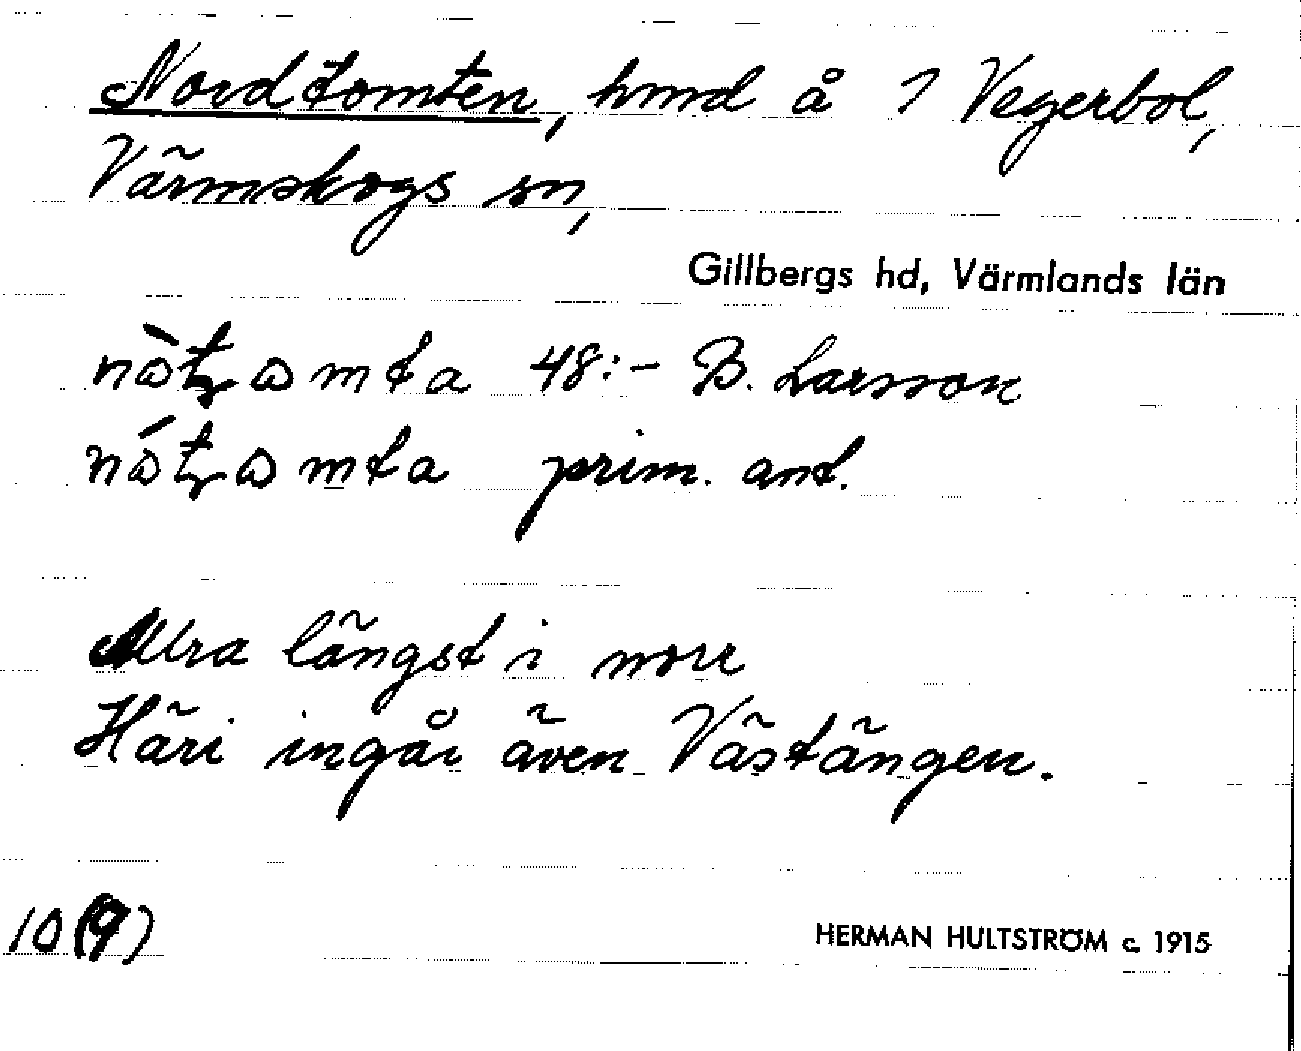 Nordtomten, hmd å 1 Vegerbol,
Värmskogs sn,
Gillbergs hd, Värmlands län
48:- B. Larsson
prim. ant.
Allra längst i norr
Häri ingår även Västängen.
10(9)
HERMAN HULTSTRÖM c. 1915